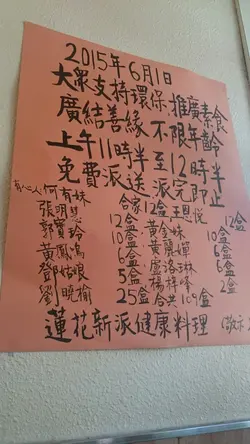 2015年6月1日
大眾支持環保推廣素食
廣結善緣 不限年齡
上午11時半至12時半
免費派送 派完即止
有心人 何有妹 合家 12盒 王思悅 12盒
張明慧 12盒 黃金妹 10盒
郭寶玲 盒 黃麗嬋 6盒
黃鳳鴻 6盒 盧洛琳 6盒
鄧姑娘 5盒 楊梓峰 2盒
劉曉榆 25盒 合共109盒
蓮花新派健康料理 (敬示